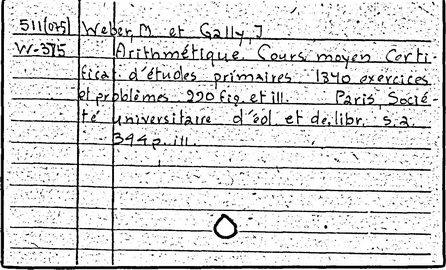 511(075) Weber, M. et Gally, J
W-375 Arithmétique. Cours moyen Certi-
ficat d'études primaires 1340 exercices
et problèmes 290 fig. et ill. Paris, Socié
té universitaire d'éd. et de libr. s.a.
344 p. ill.